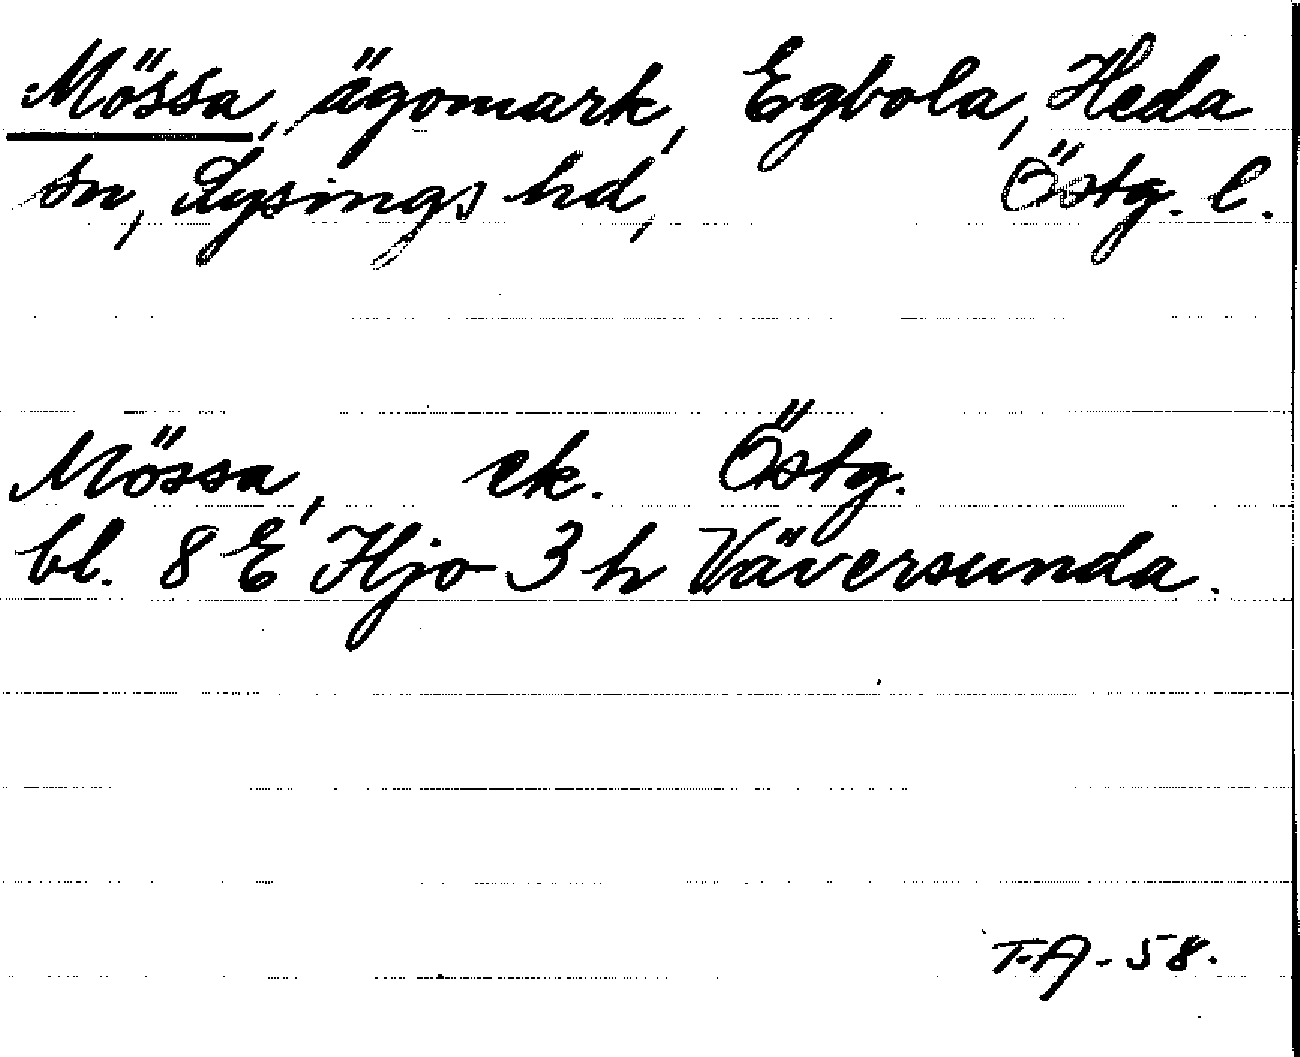 Mössa, ägomark, Egbola, Heda
sn, Lysings hd, Östg. l.
Mössa, ek. Östg.
bl. 8 E Hjo 3 h Väversunda.
T.A-58.